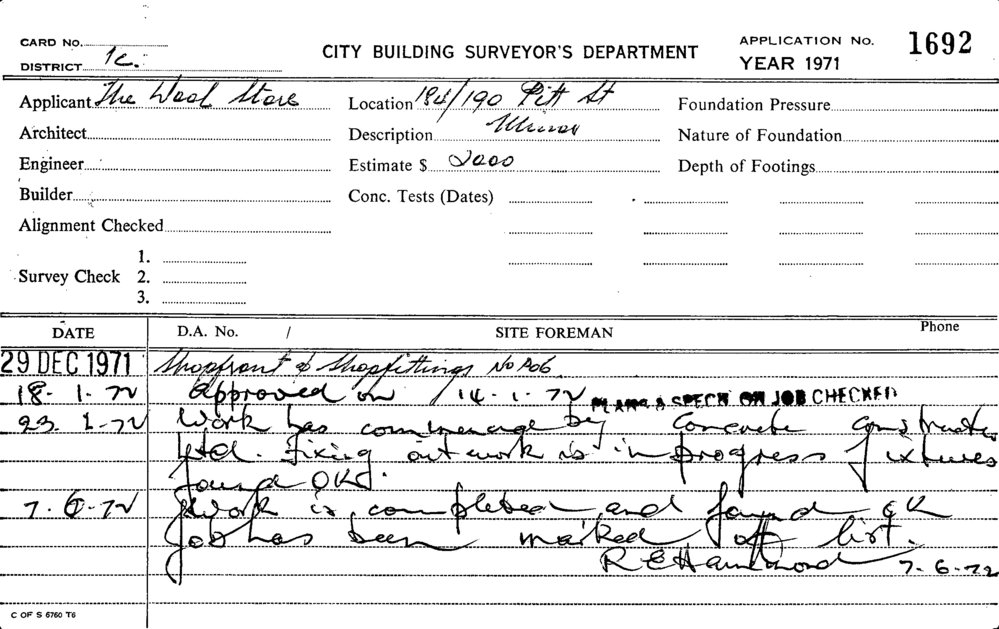 CARD No.
DISTRICT 1c.
CITY BUILDING SURVEYOR'S DEPARTMENT
APPLICATION No. 1692
YEAR 1971
Applicant The Wool Store
Location 184/190 Pitt St
Foundation Pressure
Architect
Description Minor
Nature of Foundation
Engineer
Estimate $ 2000
Depth of Footings
Builder
Conc. Tests (Dates)
Alignment Checked
Survey Check 1.
2.
3.
DATE D.A. No. / SITE FOREMAN Phone
29 DEC 1971 Shopfront & Shopfittings No
18. 1. 72 Approved on 14. 1. 72 PLANS & SPECN ON JOB CHECKED
23. 1. 72 Work has commenced by Concrete Constructions
Ltd. Fixing out work is in progress fixtures
found OK.
7. 6. 72 Work is completed and found OK
Job has been marked off list.
R E Hammond 7. 6. 72
C OF S 6760 T6